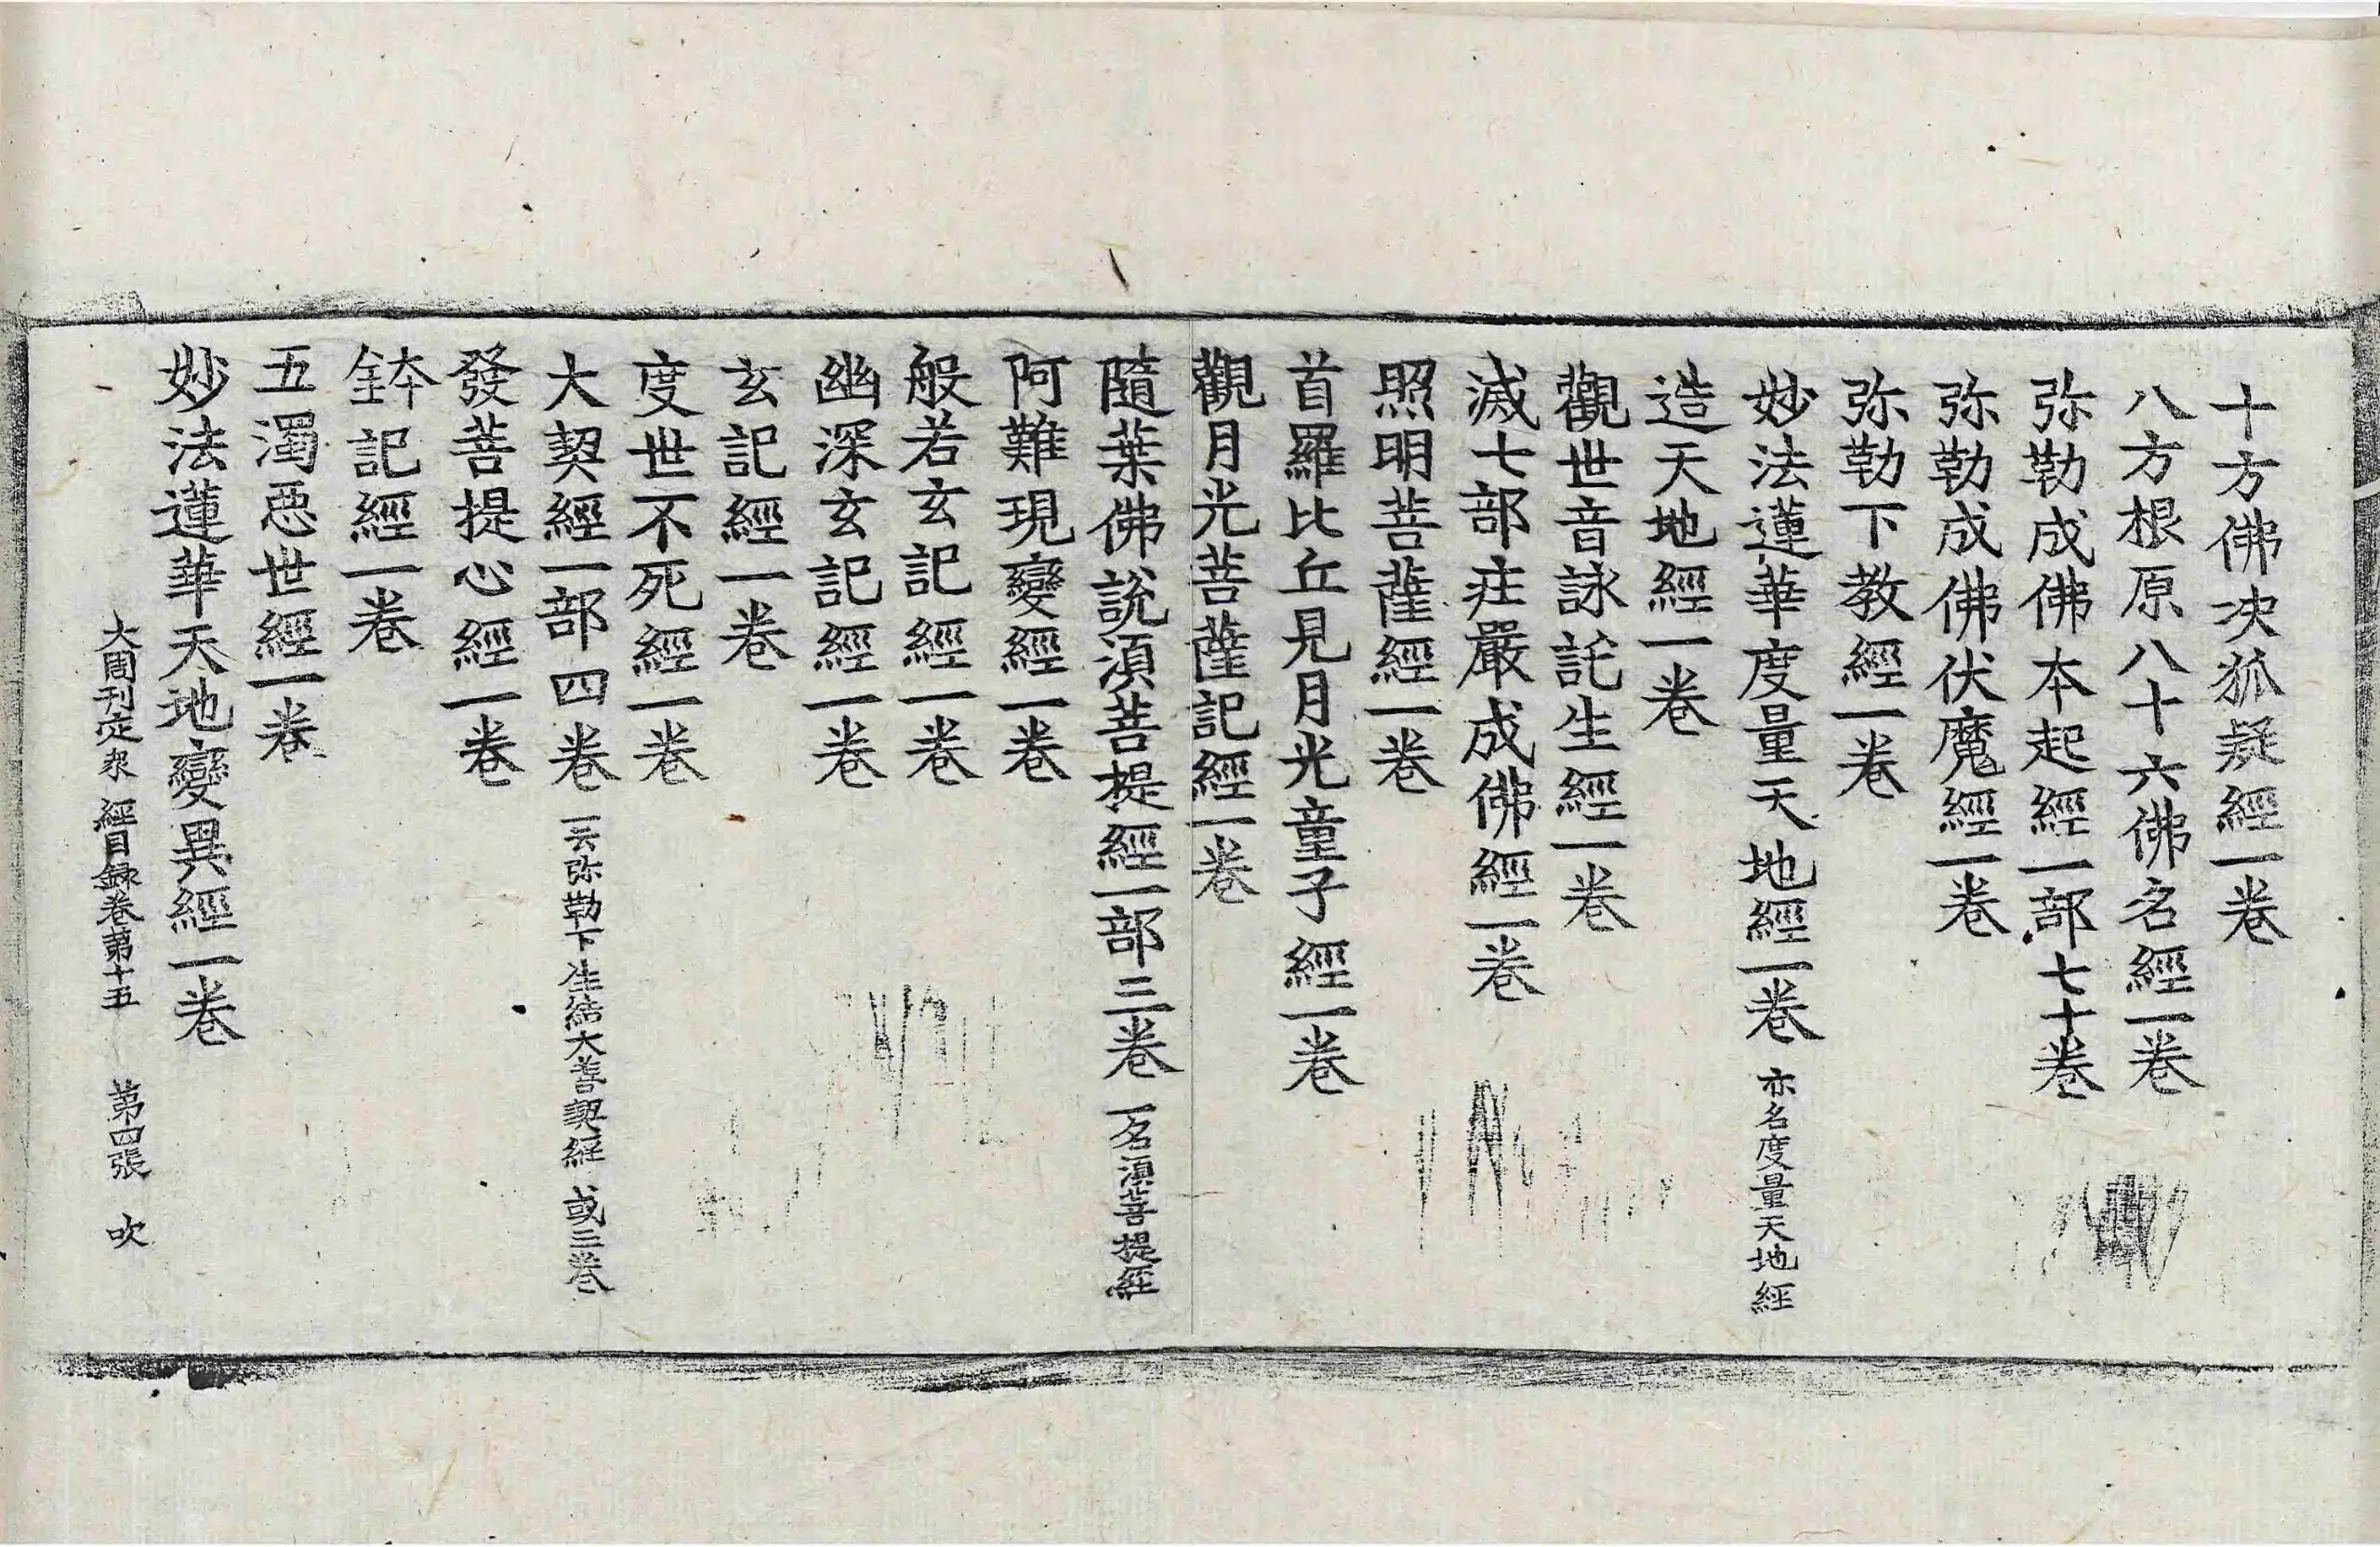 十方佛决狐疑經一卷
八方根原八十六佛名經一卷
弥勒成佛本起經一部七十卷
弥勒成佛伏魔經一卷
弥勒下教經一卷
妙法蓮華度量天地經一卷 亦名度量天地經
造天地經一卷
觀世音詠託生經一卷
滅七部莊嚴成佛經一卷
照明菩薩經一卷
首羅比丘見月光童子經一卷
觀月光菩薩記經一卷
隨葉佛說湏菩提經一部三卷 一名湏菩提經
阿難現變經一卷
般若玄記經一卷
幽深玄記經一卷
玄記經一卷
度世不死經一卷
大契經一部四卷 一云弥勒下生結大善契經 或三卷
發菩提心經一卷
鉢記經一卷
五濁惡世經一卷
妙法蓮華天地變異經一卷
大周刊定衆經目録卷第十五 第四張 吹